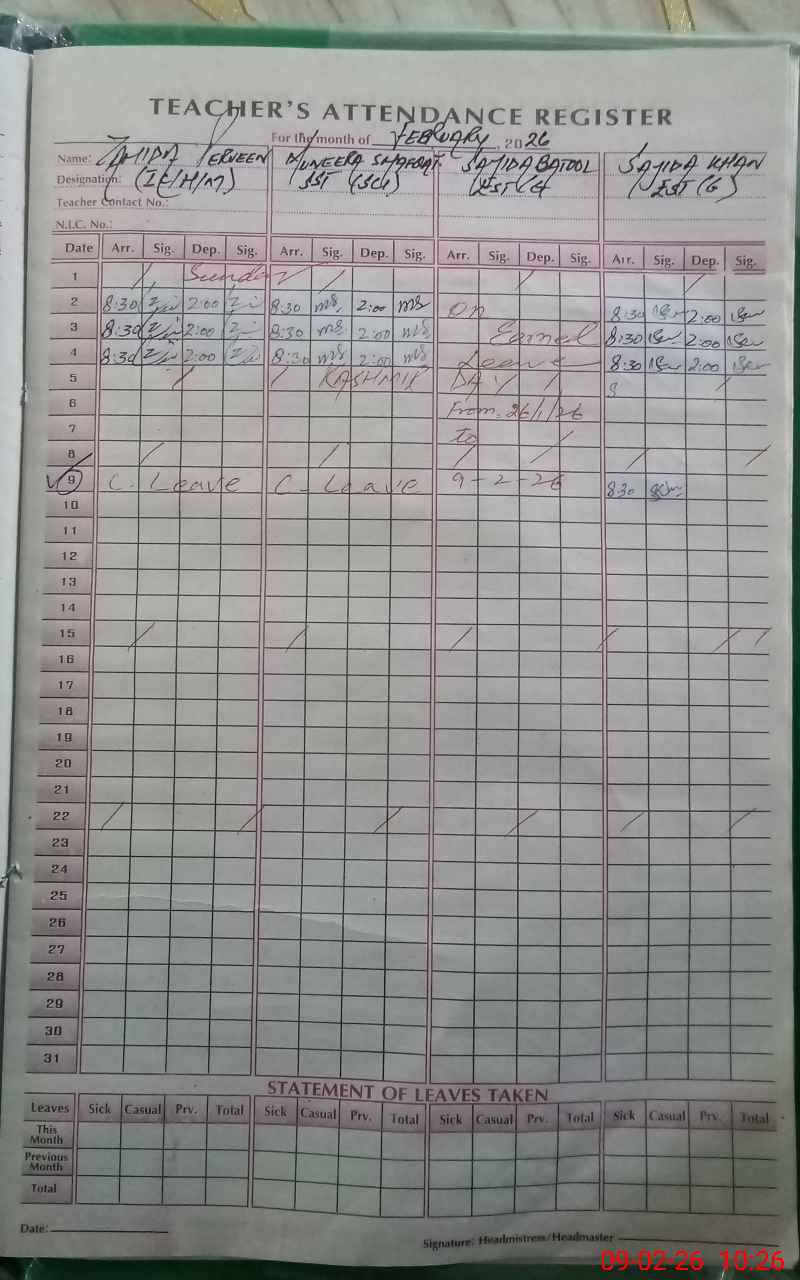 TEACHER'S ATTENDANCE REGISTER
For the month of FEBRUARY, 2026
Name: ZAHIDA PERVEEN MUNEERA SHAFQAT SAJIDA BATOOL SAJIDA KHAN
Designation: (IC/H/M) SST (Sci) EST (G) EST (G)
Teacher Contact No.:
N.I.C. No.:
Date Arr. Sig. Dep. Sig. Arr. Sig. Dep. Sig. Arr. Sig. Dep. Sig. Arr. Sig. Dep. Sig.
1 / Sunday / / /
2 8:30 2:00 8:30 ms 2:00 ms On 8:30 2:00
3 8:30 2:00 8:30 ms 2:00 ms Earned 8:30 2:00
4 8:30 2:00 8:30 ms 2:00 ms Leave 8:30 2:00
5 / / KASHMIR DAY / 8 /
6 From. 26/1/26
7 to
8 / / / / / /
9 C. Leave C. Leave 9-2-26 8:30
10
11
12
13
14
15 / / / / / /
16
17
18
19
20
21
22 / / / / / /
23
24
25
26
27
28
29
30
31
STATEMENT OF LEAVES TAKEN
Leaves Sick Casual Prv. Total Sick Casual Prv. Total Sick Casual Prv. Total Sick Casual Prv. Total
This
Month
Previous
Month
Total
Date:
Signature: Headmistress/Headmaster
09-02-26 10:26